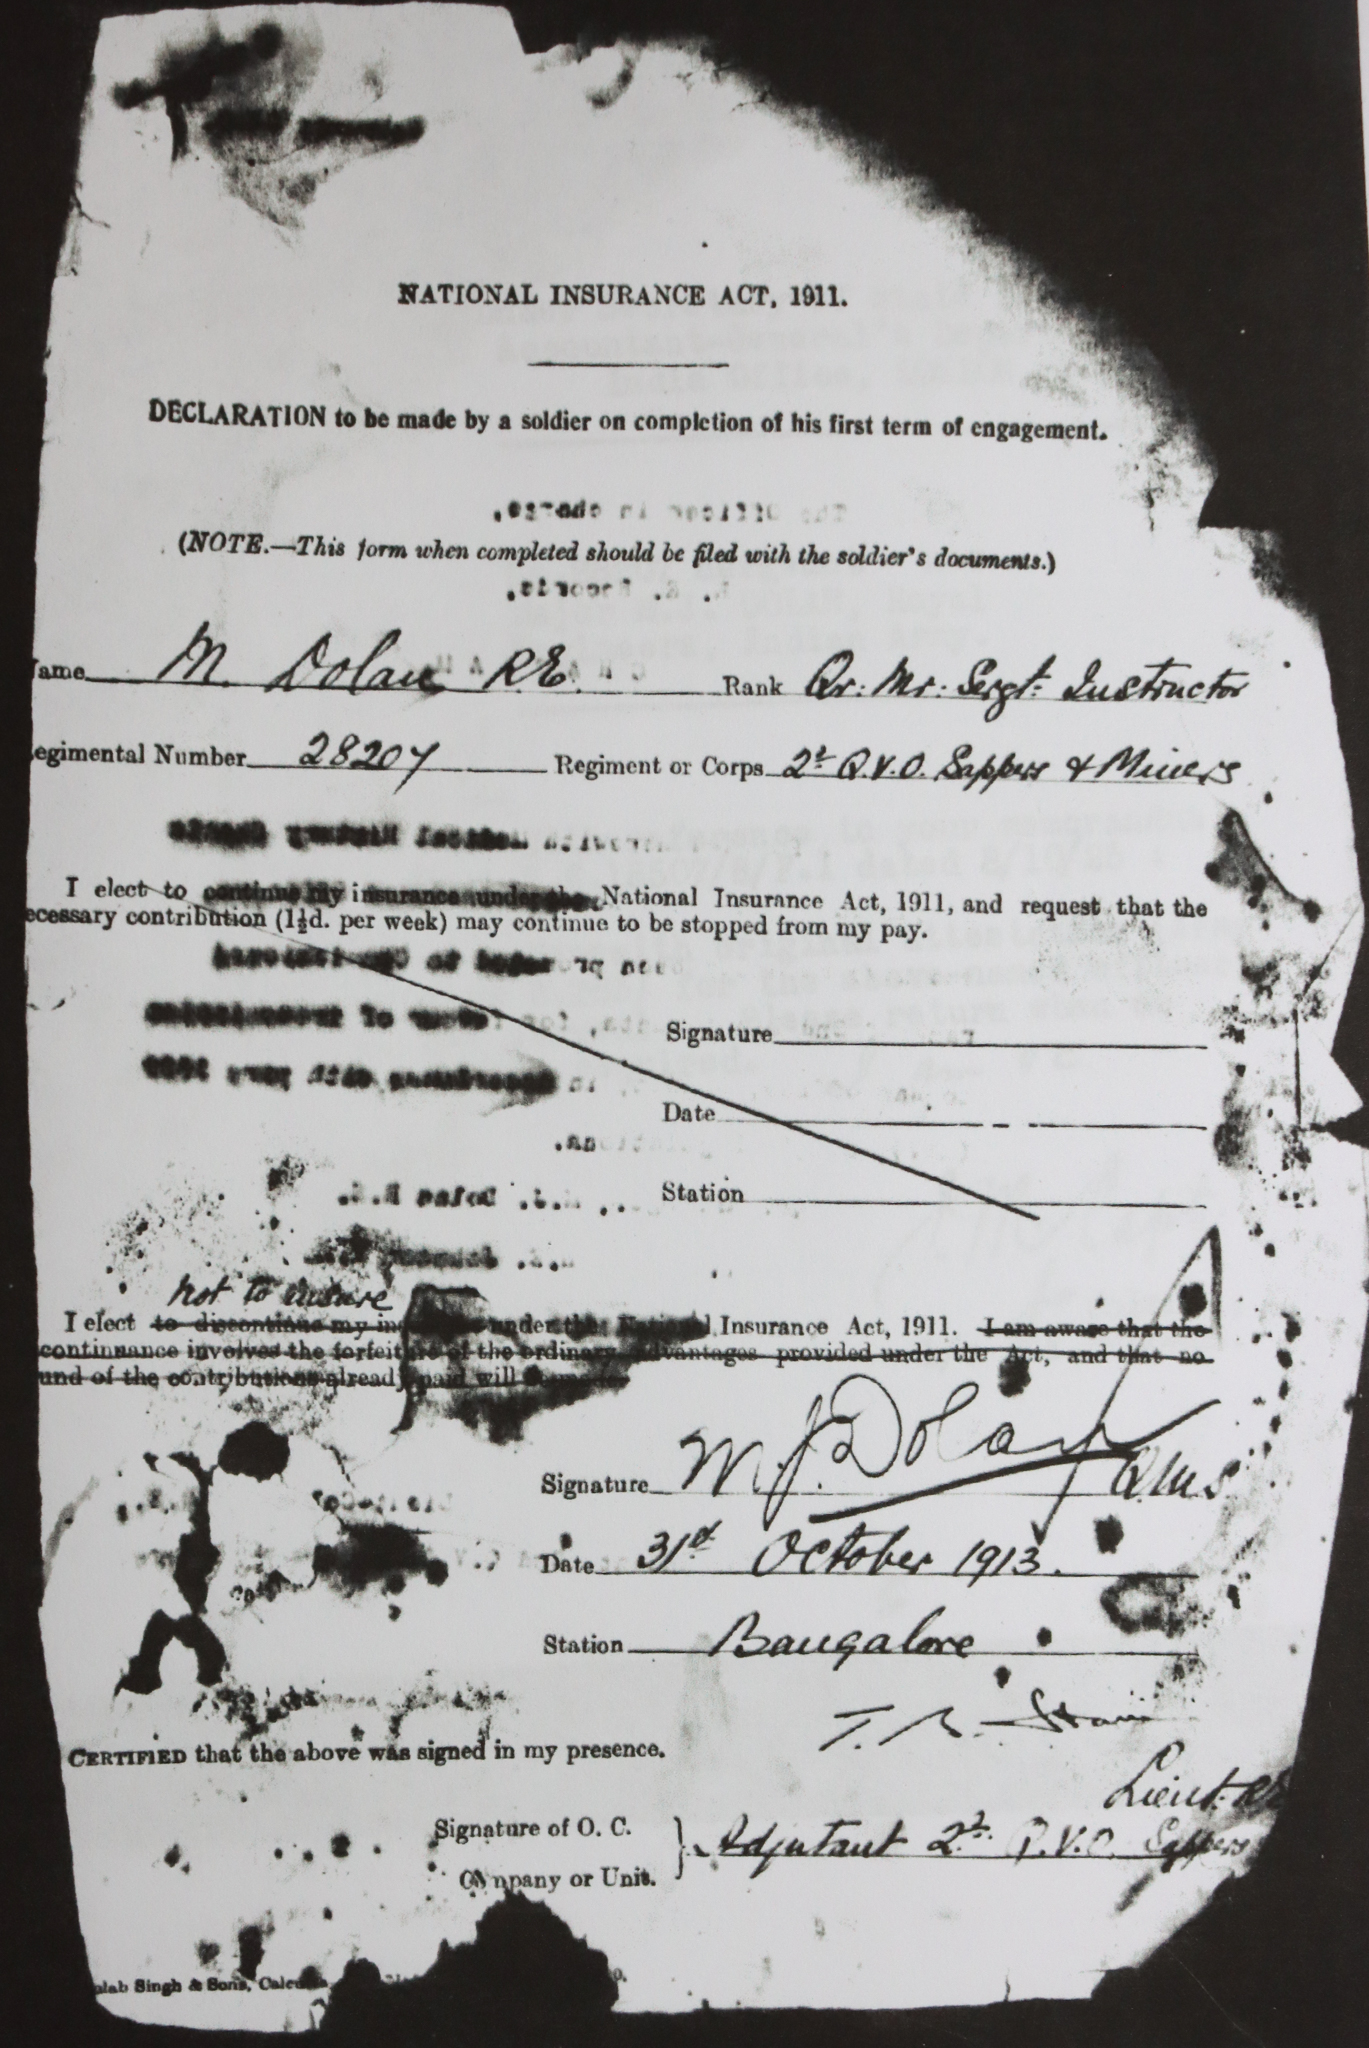 NATIONAL INSURANCE ACT, 1911.
DECLARATION to be made by a soldier on completion of his first term of engagement.
(NOTE.—This form when completed should be filed with the soldier's documents.)
ame M. Dolan RE. Rank Qr: Mr: Sergt: Instructor
egimental Number 28207 Regiment or Corps 2d Q.V.O. Sappers & Miners
I elect to continue my insurance under the National Insurance Act, 1911, and request that the
ecessary contribution (1½d. per week) may continue to be stopped from my pay.
Signature
Date
Station
not to insure
I elect to discontinue my under the National Insurance Act, 1911. I am aware that the
continuance involves the forfeiture of the ordinary advantages provided under the Act, and that no
und of the contributions already paid will
Signature M. J. Dolan QMS
Date 31st October 1913.
Station Bangalore
CERTIFIED that the above was signed in my presence.
Lieut. RE
Signature of O. C.
Company or Unit. } Adjutant 2d Q.V.O. Sappers
lab Singh & Sons, Calcu